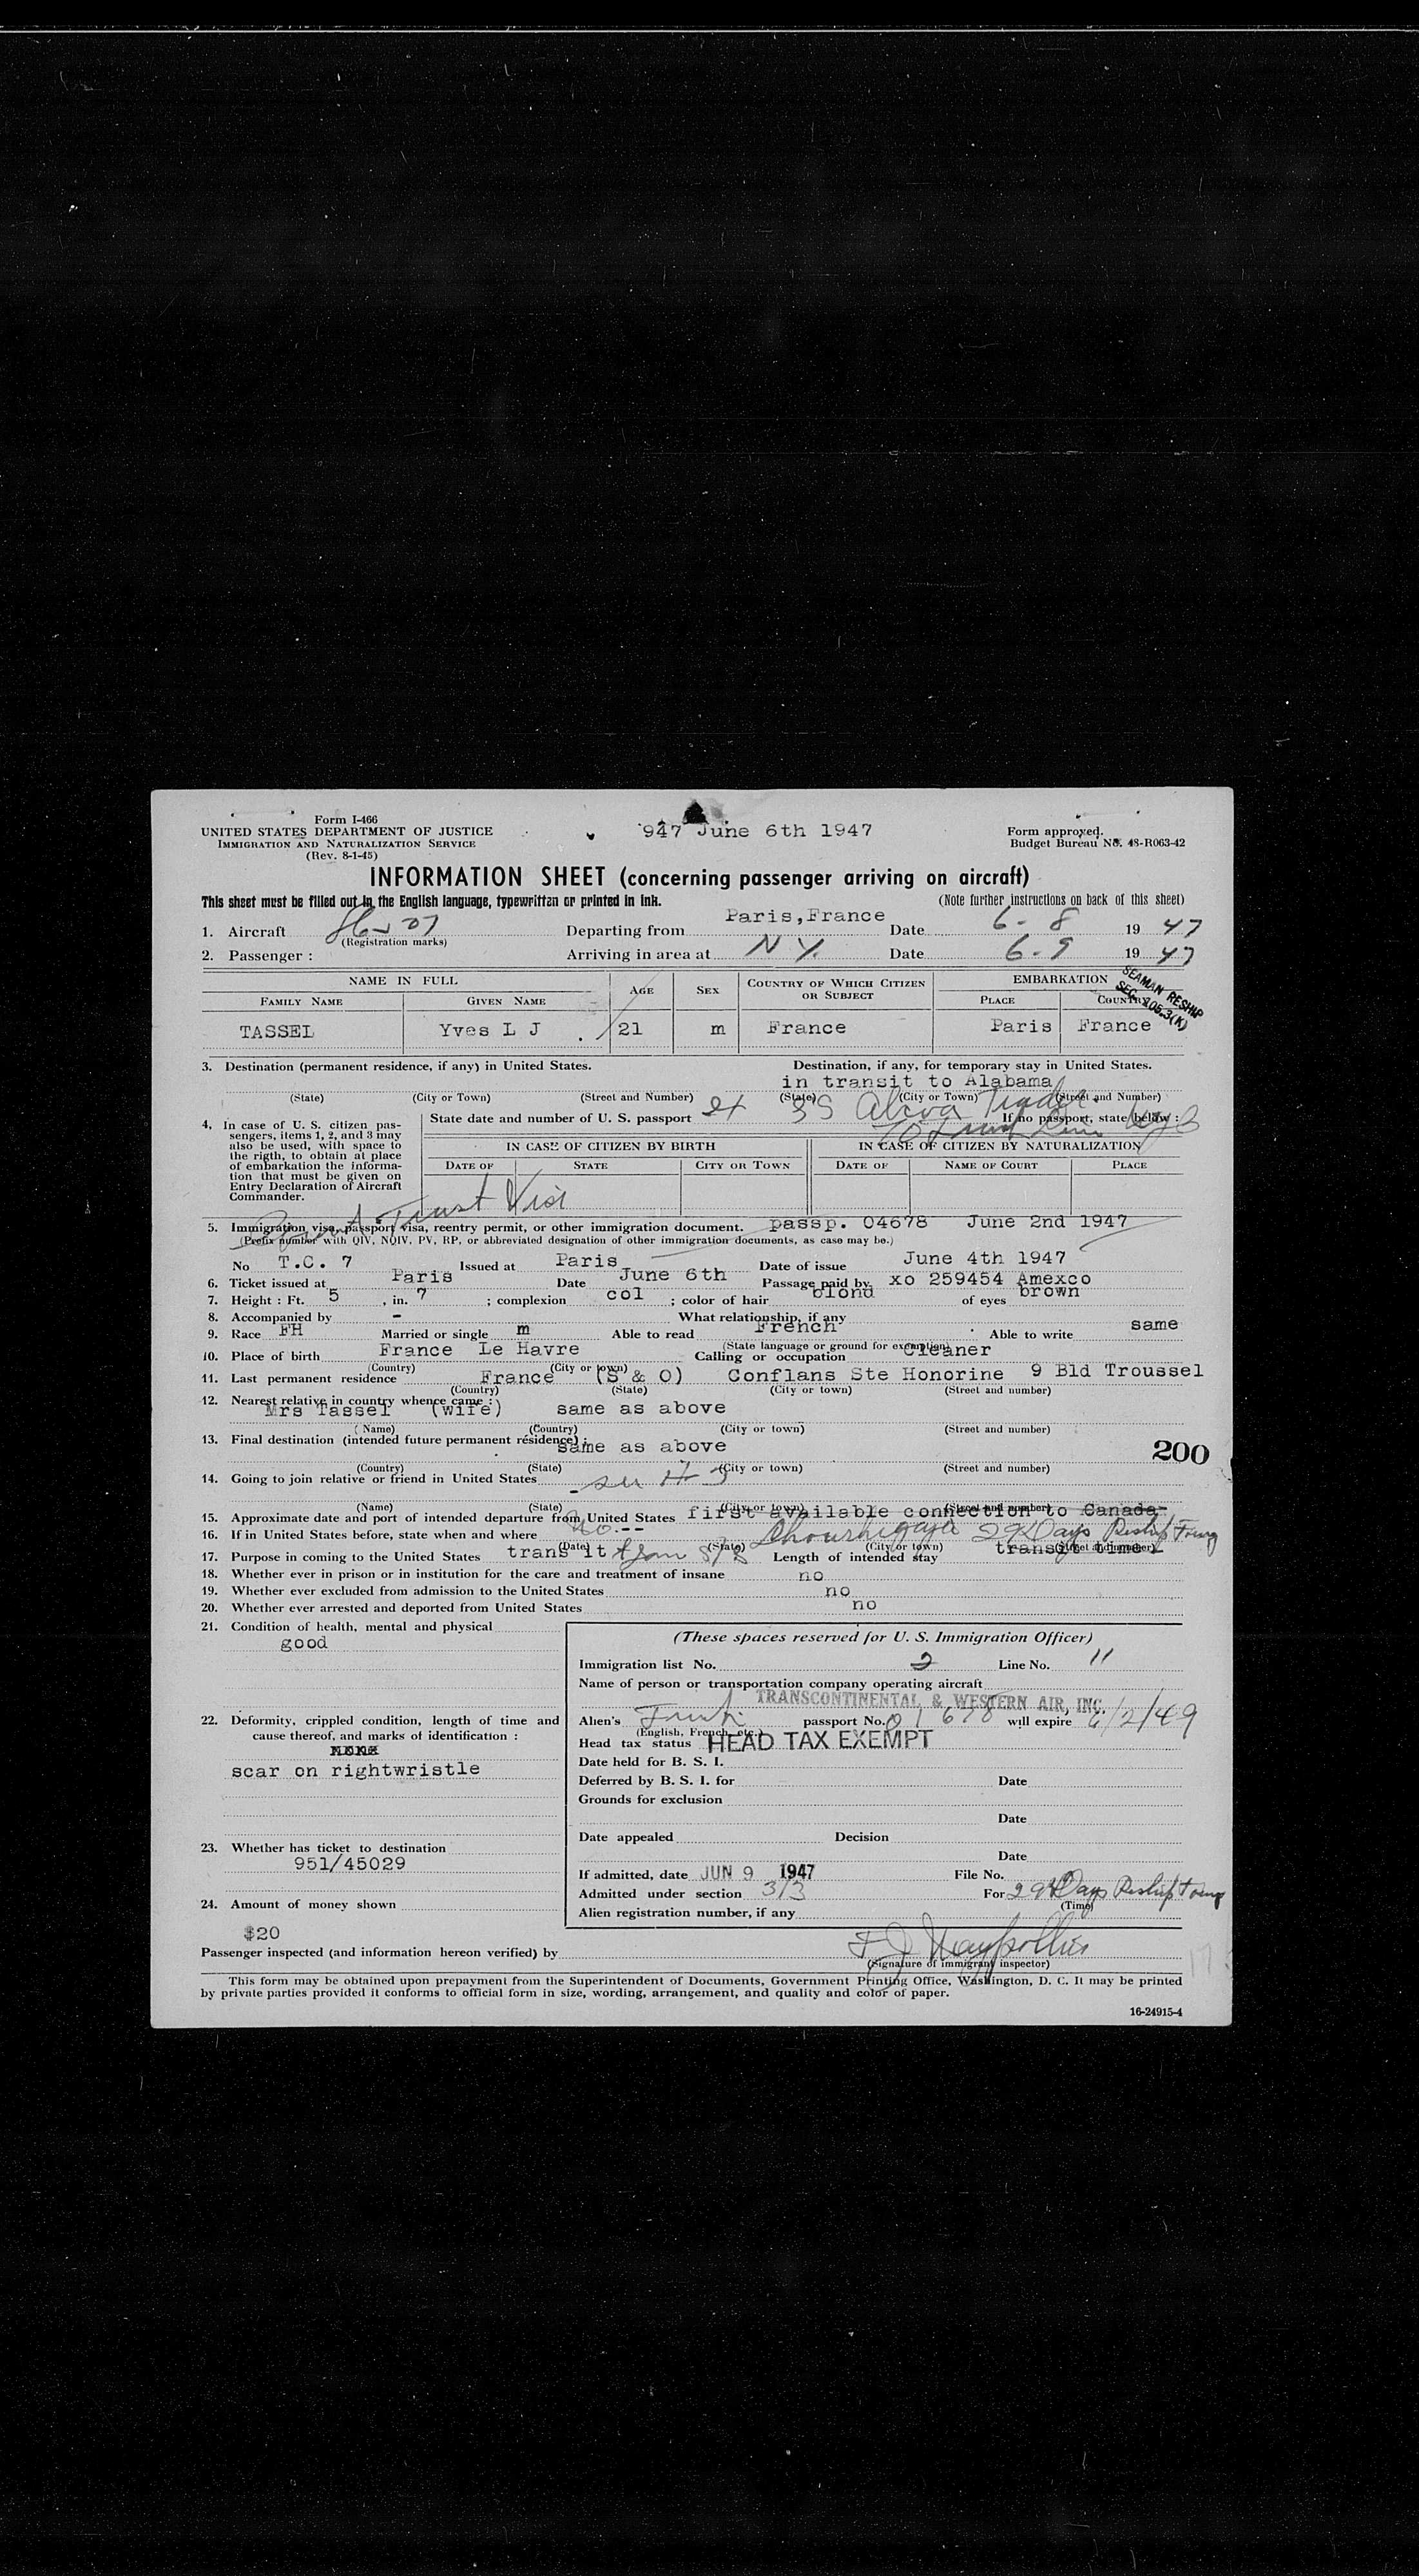 Form I-466
UNITED STATES DEPARTMENT OF JUSTICE
IMMIGRATION AND NATURALIZATION SERVICE
(Rev. 8-1-45)
947 June 6th 1947
Form approved.
Budget Bureau No. 48-R063-42
INFORMATION SHEET (concerning passenger arriving on aircraft)
This sheet must be filled out in the English language, typewritten or printed in ink.
(Note further instructions on back of this sheet)
1. Aircraft
(Registration marks)
Departing from Paris,France Date 6-8 1947
2. Passenger :
Arriving in area at N Y. Date 6-9 1947
NAME IN FULL
FAMILY NAME GIVEN NAME AGE SEX COUNTRY OF WHICH CITIZEN OR SUBJECT EMBARKATION PLACE COUNTRY
SEAMAN RESHIP
SEC. 105.3(K)
TASSEL Yves L J . 21 m France Paris France
3. Destination (permanent residence, if any) in United States.
Destination, if any, for temporary stay in United States.
in transit to Alabama
(State) (City or Town) (Street and Number) (State) (City or Town) (Street and Number)
SS Alcoa
4. In case of U. S. citizen passengers, items 1, 2, and 3 may
also be used, with space to
the rigth, to obtain at place
of embarkation the informa-
tion that must be given on
Entry Declaration of Aircraft
Commander.
State date and number of U. S. passport
If no passport, state below :
IN CASE OF CITIZEN BY BIRTH IN CASE OF CITIZEN BY NATURALIZATION
DATE OF STATE CITY OR TOWN DATE OF NAME OF COURT PLACE
5. Immigration visa, passport visa, reentry permit, or other immigration document. passp. 04678 June 2nd 1947
(Prefix number with QIV, NQIV, PV, RP, or abbreviated designation of other immigration documents, as case may be.)
No T.C. 7 Issued at Paris Date of issue June 4th 1947
6. Ticket issued at Paris Date June 6th Passage paid by xo 259454 Amexco
7. Height : Ft. 5 , in. 7 ; complexion col ; color of hair blond of eyes brown
8. Accompanied by - What relationship, if any
9. Race FH Married or single m Able to read French Able to write same
(State language or ground for exemption)
10. Place of birth France Le Havre Calling or occupation Cleaner
(Country) (City or town)
11. Last permanent residence France (S & O) Conflans Ste Honorine 9 Bld Troussel
(Country) (State) (City or town) (Street and number)
12. Nearest relative in country whence came :
Mrs Tassel (wife) same as above
(Name) (Country) (City or town) (Street and number)
13. Final destination (intended future permanent résidence) :
same as above
200
(Country) (State) (City or town) (Street and number)
14. Going to join relative or friend in United States
(Name) (State) (City or town) (Street and number)
15. Approximate date and port of intended departure from United States first available connection to Canada
16. If in United States before, state when and where 29 Days Reship Foreign
(Date) (State) (City or town) (Street and number)
17. Purpose in coming to the United States transit Length of intended stay transit time
18. Whether ever in prison or in institution for the care and treatment of insane no
19. Whether ever excluded from admission to the United States no
20. Whether ever arrested and deported from United States no
21. Condition of health, mental and physical
good
22. Deformity, crippled condition, length of time and
cause thereof, and marks of identification :
none
scar on rightwristle
23. Whether has ticket to destination
951/45029
24. Amount of money shown
$20
(These spaces reserved for U. S. Immigration Officer)
Immigration list No. 2 Line No. 11
Name of person or transportation company operating aircraft
TRANSCONTINENTAL & WESTERN AIR, INC.
Alien's passport No. will expire 6/2/49
(English, French, etc.)
Head tax status HEAD TAX EXEMPT
Date held for B. S. I.
Deferred by B. S. I. for Date
Grounds for exclusion
Date
Date appealed Decision
Date
If admitted, date JUN 9 1947 File No.
Admitted under section 3/3 For 29 Days Reship Foreign
(Time)
Alien registration number, if any
Passenger inspected (and information hereon verified) by
(Signature of immigrant inspector)
This form may be obtained upon prepayment from the Superintendent of Documents, Government Printing Office, Washington, D. C. It may be printed
by private parties provided it conforms to official form in size, wording, arrangement, and quality and color of paper.
16-24915-4